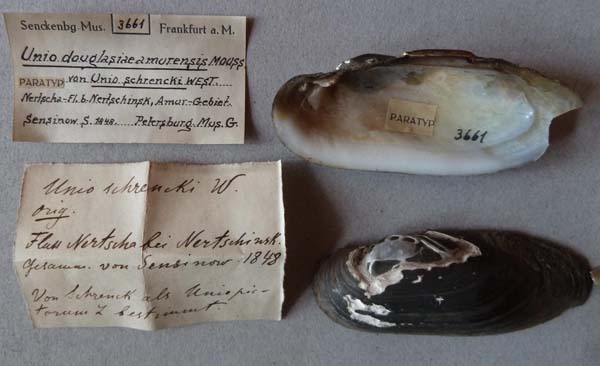 Senckenbg-Mus. 3661 Frankfurt a. M.
Unio douglasiae amurensis MOUSS
PARATYP von Unio schrencki WEST.....
Nertscha-Fl. b. Nertschinsk, Amur-Gebiet.
Sensinow S. 1848. ..... Petersburg. Mus. G.
Unio schrencki W.
orig.
Fluss Nertscha bei Nertschinsk.
Gesamm. von Sensinow 1848
Von Schrenck als Unio pic-
torum L bestimmt.
PARATYP
3661